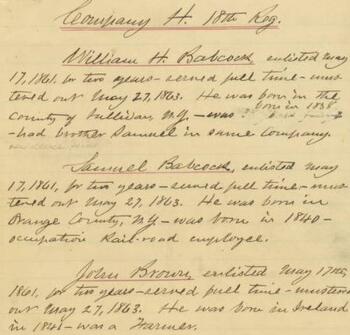 Company H. 18th Reg.
William H. Babcock, enlisted May
17, 1861, for two years - served full time - mus-
tered out May 27, 1863. He was born in the
born in 1838
County of Sullivan, N.Y. - was
- had brother Samuel in same Company.
Samuel Babcock, enlisted May
17, 1861, for two years - served full time - mus-
tered out May 27, 1863. He was born in
Orange County, N.Y. - was born in 1840 -
occupation Rail-road employee.
John Brown, enlisted May 17th,
1861, for two years - served full time - mustered
out May 27, 1863. He was born in Ireland
in 1841 - was a Farmer.